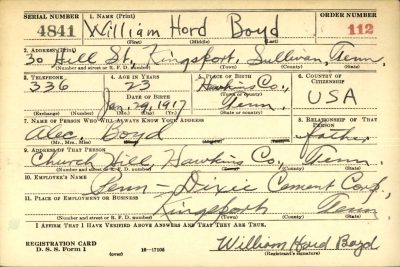 SERIAL NUMBER 1. NAME (Print) ORDER NUMBER
4841 William Hord Boyd 112
(First) (Middle) (Last)
2. ADDRESS (Print)
30 Hill St., Kingsport, Sullivan, Tenn.
(Number and street or R. F. D. number) (Town) (County) (State)
3. TELEPHONE 4. AGE IN YEARS 5. PLACE OF BIRTH 6. COUNTRY OF CITIZENSHIP
336 23 Hawkins Co., USA
DATE OF BIRTH (Town or county)
Jan. 29, 1917 Tenn.
(Exchange) (Number) (Mo.) (Day) (Yr.) (State or country)
7. NAME OF PERSON WHO WILL ALWAYS KNOW YOUR ADDRESS 8. RELATIONSHIP OF THAT PERSON
Alec Boyd father
(Mr., Mrs., Miss) (First) (Middle) (Last)
9. ADDRESS OF THAT PERSON
Church Hill, Hawkins Co., Tenn.
(Number and street or R. F. D. number) (Town) (County) (State)
10. EMPLOYER'S NAME
Penn-Dixie Cement Corp.
11. PLACE OF EMPLOYMENT OR BUSINESS
Kingsport Tenn
(Number and street or R. F. D. number) (Town) (County) (State)
I AFFIRM THAT I HAVE VERIFIED ABOVE ANSWERS AND THAT THEY ARE TRUE.
REGISTRATION CARD
D. S. S. Form 1 (over) 16-17105 William Hord Boyd
(Registrant's signature)